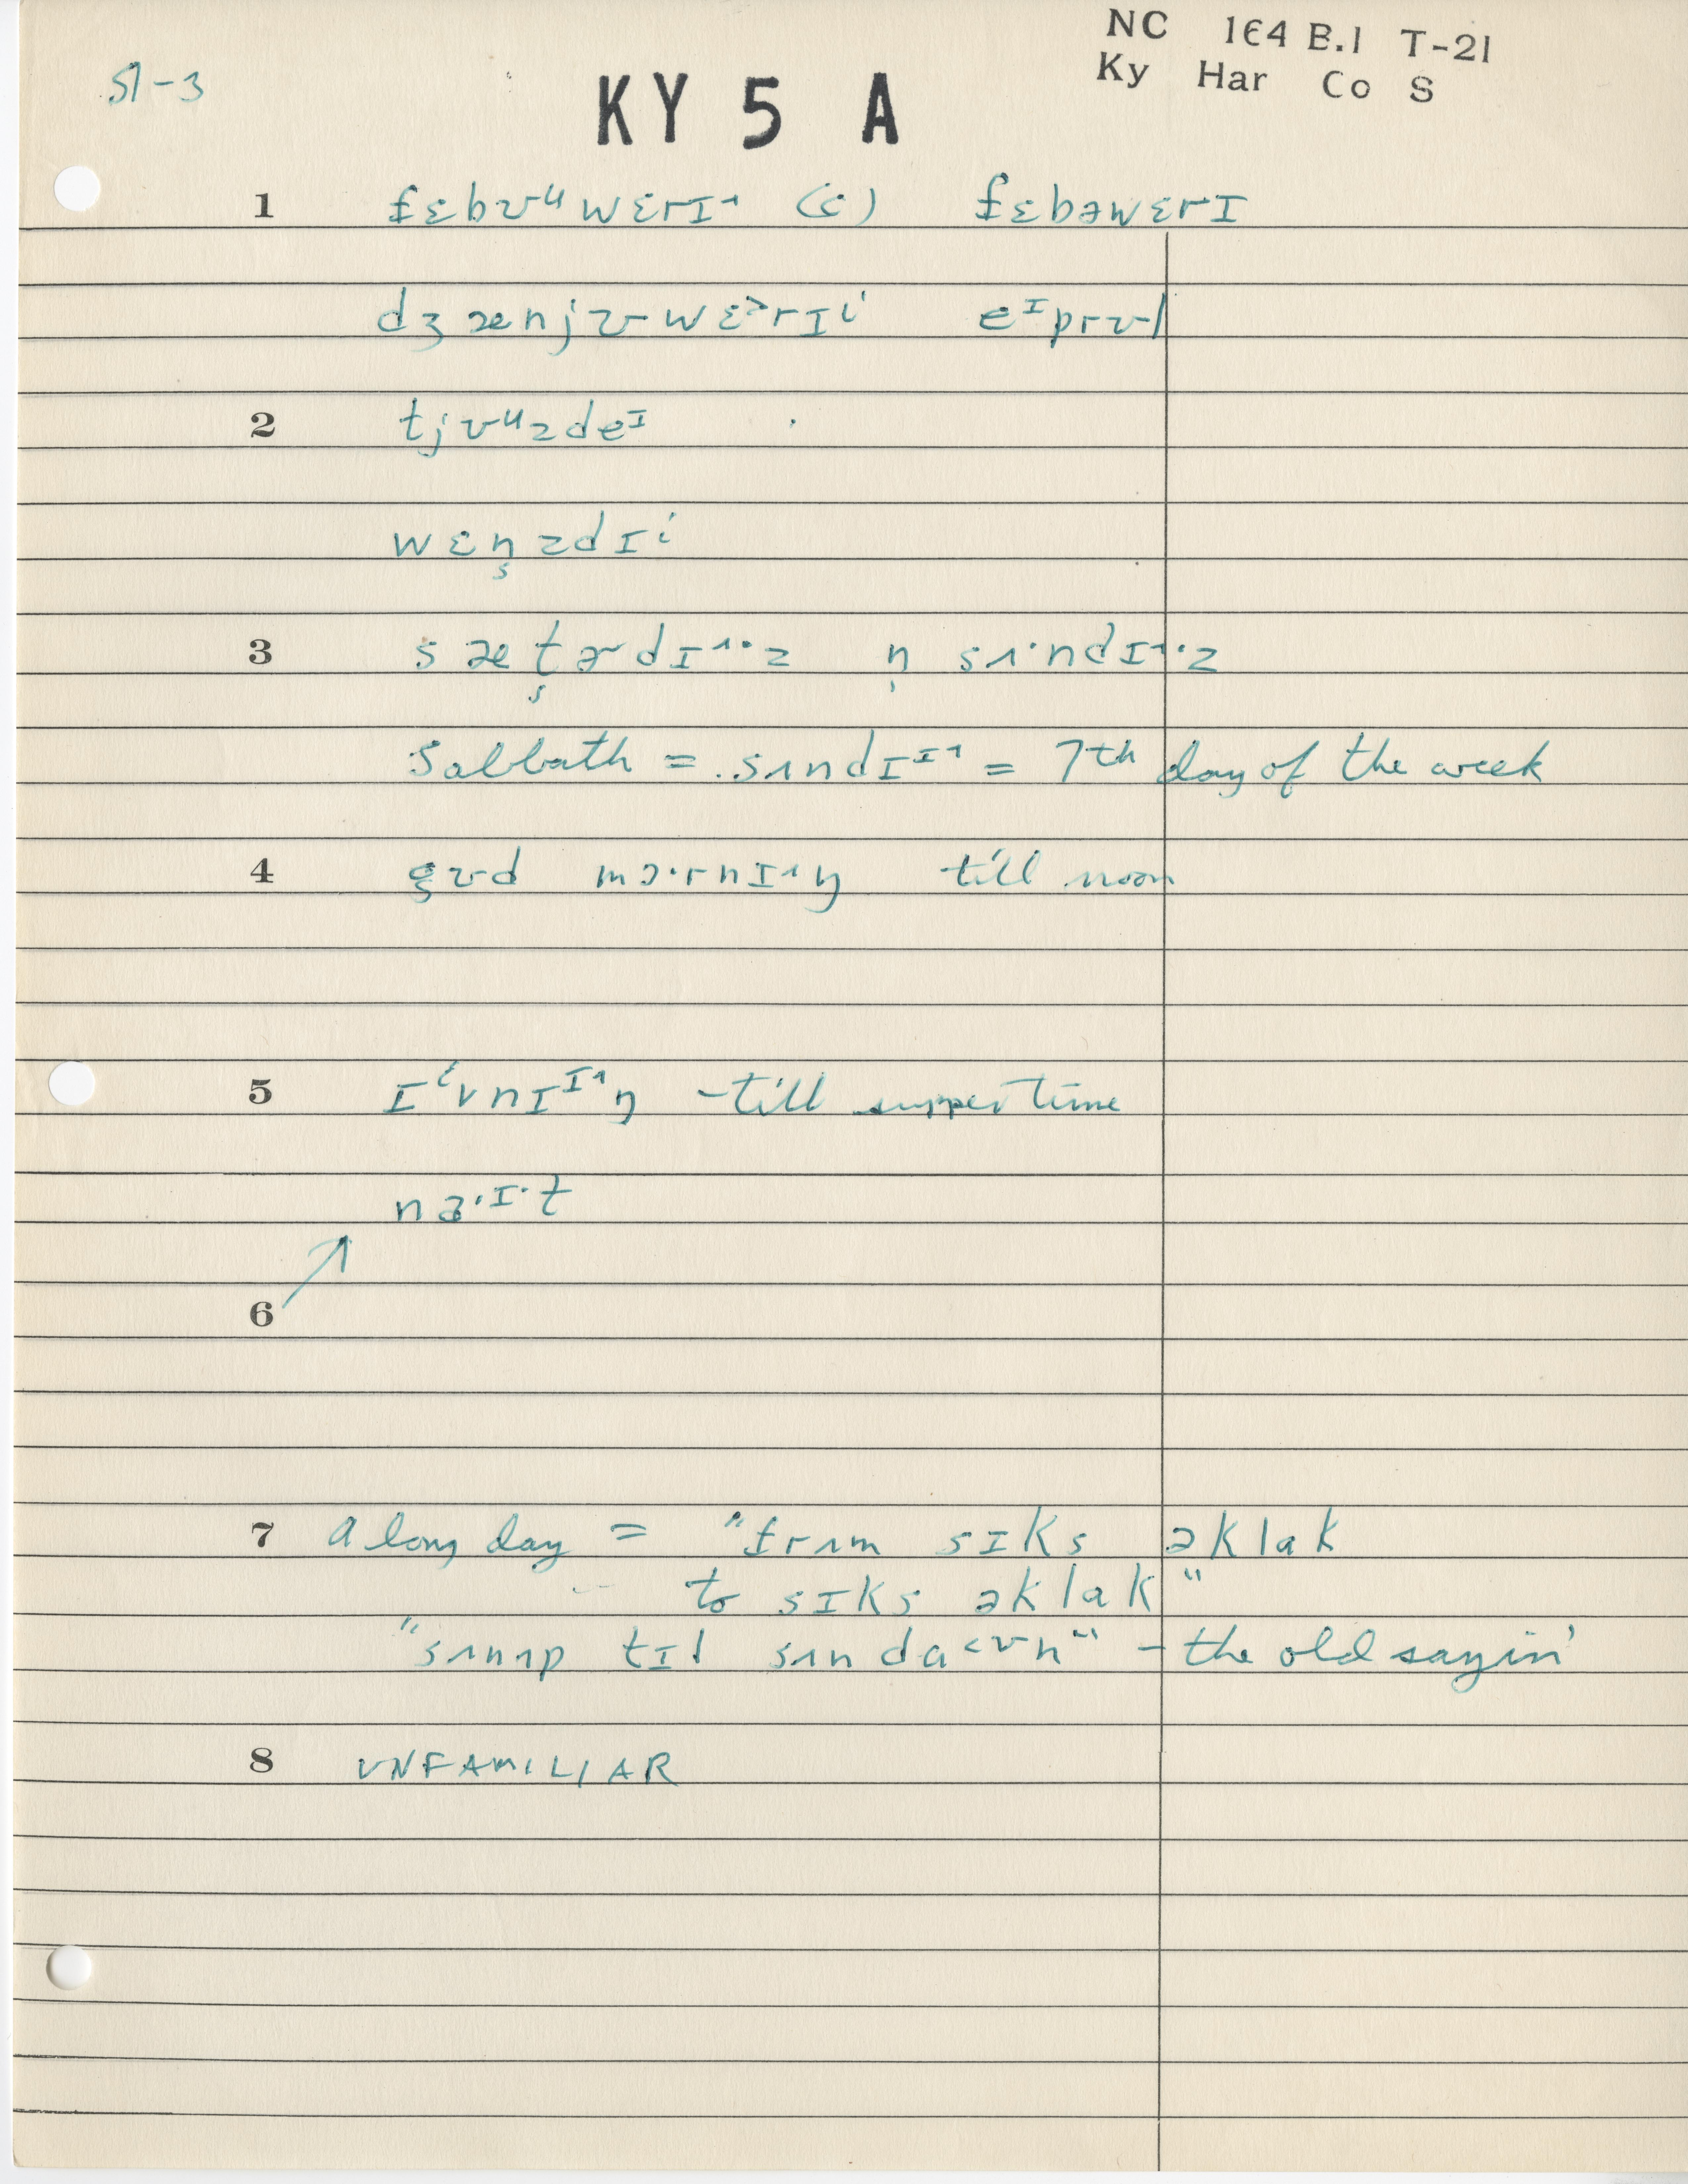 NC 1E4 B.1 T-21
Ky Har Co S
51-3
KY 5 A
1 fɛbʊᵘwɛrɪ˄ (c) fɛbəwɛrɪ
dʒænjʊwɛ˃rɪⁱ eᶦprʊl
2 tjʊᵘzdeᶦ
wɛn̬zdɪⁱ
3 sæt̬ɚdɪ˄·z n̩ sʌ·ndɪ˄·z
Sabbath = sʌndɪᶦ˄ = 7th day of the week
4 gʊd mɔ·rnɪ˄ŋ till noon
5 ɪⁱvnɪᶦ˄ŋ - till supper time
na·ɪ·t
6
7 A long day = "frʌm sɪks əklak
to sɪks əklak"
"sʌnʌp tɪl sʌn da˂ʊn" - the old sayin'
8 UNFAMILIAR